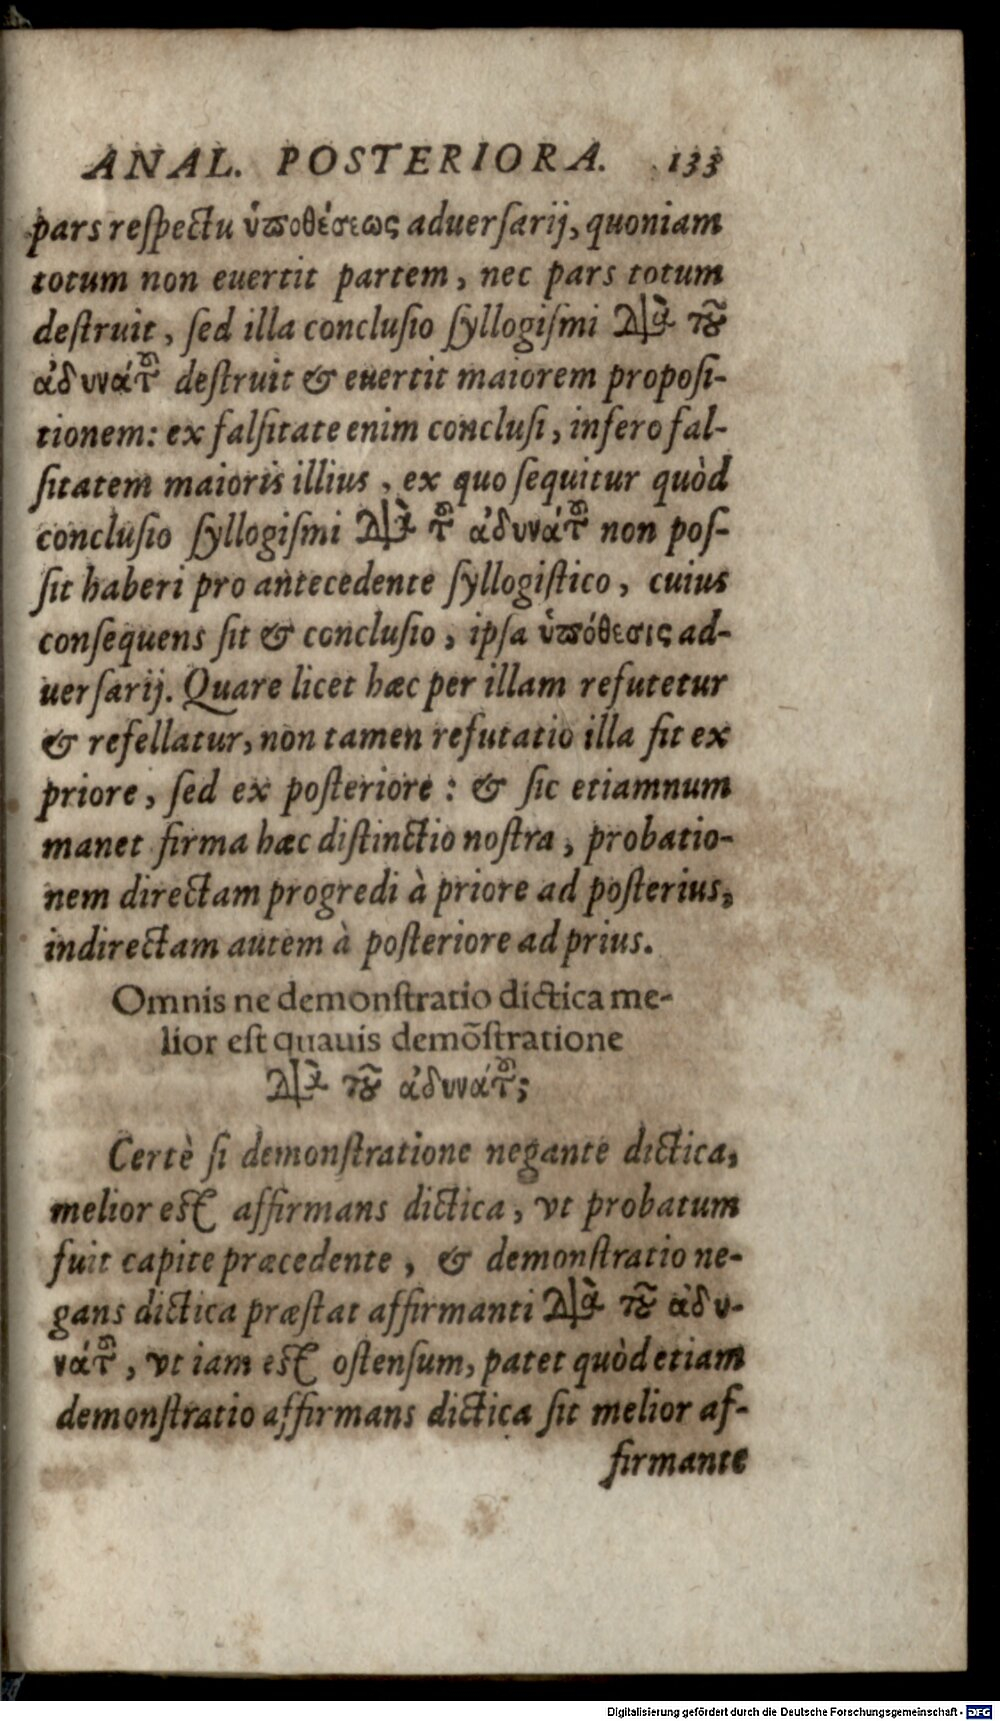 ANAL. POSTERIORA. 133
pars respectu ὑποθέσεως aduersarij, quoniam
totum non euertit partem, nec pars totum
destruit, sed illa conclusio syllogismi διὰ τοῦ
ἀδυνάτου destruit & euertit maiorem proposi-
tionem: ex falsitate enim conclusi, infero fal-
sitatem maioris illius, ex quo sequitur quòd
conclusio syllogismi διὰ τοῦ ἀδυνάτου non pos-
sit haberi pro antecedente syllogistico, cuius
consequens sit & conclusio, ipsa ὑπόθεσις ad-
uersarij. Quare licet hæc per illam refutetur
& refellatur, non tamen refutatio illa sit ex
priore, sed ex posteriore: & sic etiamnum
manet firma hæc distinctio nostra, probatio-
nem directam progredi à priore ad posterius,
indirectam autem à posteriore ad prius.
Omnis ne demonstratio dictica me-
lior est quauis demõstratione
διὰ τοῦ ἀδυνάτου;
Certè si demonstratione negante dictica,
melior est affirmans dictica, vt probatum
fuit capite præcedente, & demonstratio ne-
gans dictica præstat affirmanti διὰ τοῦ ἀδυ-
νάτου, vt iam est ostensum, patet quòd etiam
demonstratio affirmans dictica sit melior af-
firmante
Digitalisierung gefördert durch die Deutsche Forschungsgemeinschaft - DFG